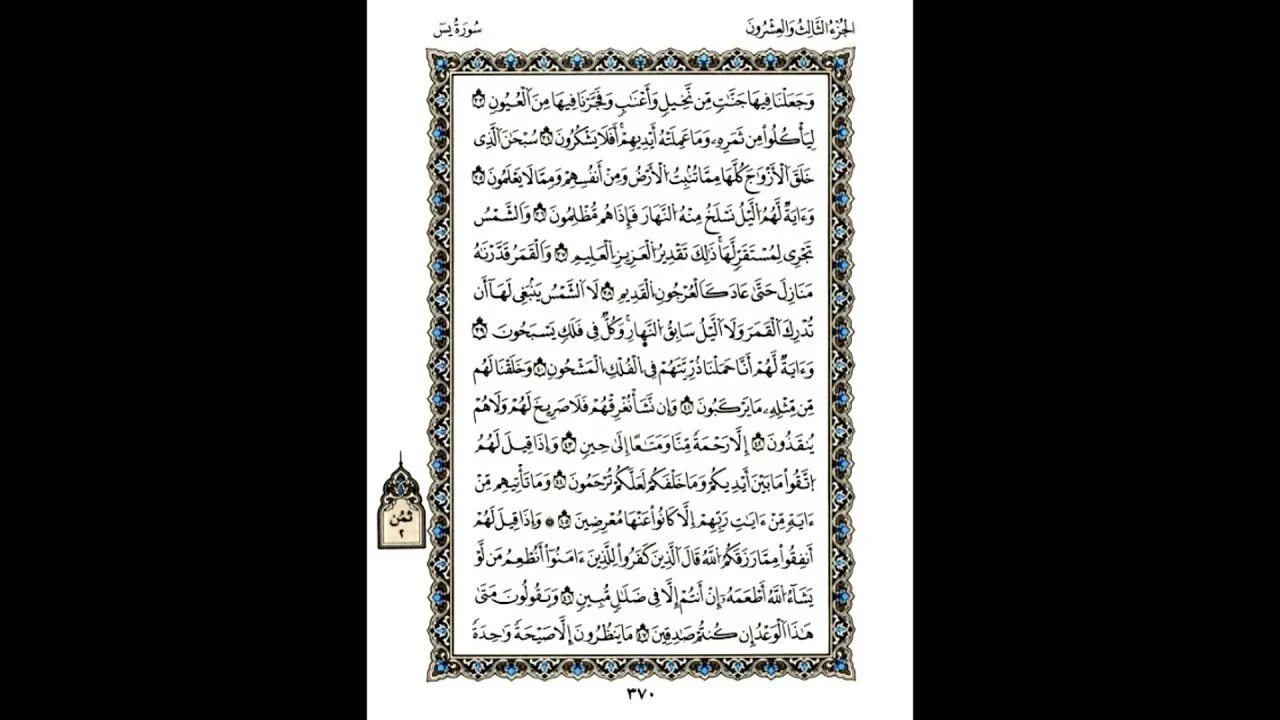 الجُزْءُ الثَّالِثُ وَالْعِشْرُونَ
سُورَةُ يسٓ
وَجَعَلْنَا فِيهَا جَنَّٰتٍ مِّن نَّخِيلٍ وَأَعْنَٰبٍ وَفَجَّرْنَا فِيهَا مِنَ اَلْعُيُونِ ٣٣
لِيَأْكُلُواْ مِن ثَمَرِهِۦ وَمَا عَمِلَتْهُ أَيْدِيهِمْۚ أَفَلَا يَشْكُرُونَ ٣٤ سُبْحَٰنَ اَلَّذِي
خَلَقَ اَلْأَزْوَٰجَ كُلَّهَا مِمَّا تُنۢبِتُ اُلْأَرْضُ وَمِنْ أَنفُسِهِمْ وَمِمَّا لَا يَعْلَمُونَ ٣٥
وَءَايَةٌ لَّهُمُ اُلَّيْلُ نَسْلَخُ مِنْهُ اُلنَّهَارَ فَإِذَا هُم مُّظْلِمُونَ ٣٦ وَالشَّمْسُ
تَجْرِي لِمُسْتَقَرٍّ لَّهَاۚ ذَٰلِكَ تَقْدِيرُ اُلْعَزِيزِ اِلْعَلِيمِ ٣٧ وَالْقَمَرُ قَدَّرْنَٰهُ
مَنَازِلَ حَتَّىٰ عَادَ كَالْعُرْجُونِ اِلْقَدِيمِ ٣٨ لَا اَلشَّمْسُ يَنۢبَغِي لَهَآ أَن
تُدْرِكَ اَلْقَمَرَ وَلَا اَلَّيْلُ سَابِقُ اُلنَّهَارِۚ وَكُلٌّ فِي فَلَكٍ يَسْبَحُونَ ٣٩
وَءَايَةٌ لَّهُمْ أَنَّا حَمَلْنَا ذُرِّيَّتَهُمْ فِي اِلْفُلْكِ اِلْمَشْحُونِ ٤٠ وَخَلَقْنَا لَهُم
مِّن مِّثْلِهِۦ مَا يَرْكَبُونَ ٤١ وَإِن نَّشَأْ نُغْرِقْهُمْ فَلَا صَرِيخَ لَهُمْ وَلَا هُمْ
يُنقَذُونَ ٤٢ إِلَّا رَحْمَةً مِّنَّا وَمَتَٰعًا إِلَىٰ حِينٍ ٤٣ وَإِذَا قِيلَ لَهُمُ
اُتَّقُواْ مَا بَيْنَ أَيْدِيكُمْ وَمَا خَلْفَكُمْ لَعَلَّكُمْ تُرْحَمُونَ ٤٤ وَمَا تَأْتِيهِم مِّنْ
ءَايَةٍ مِّنْ ءَايَٰتِ رَبِّهِمْ إِلَّا كَانُواْ عَنْهَا مُعْرِضِينَ ٤٥ ۞ وَإِذَا قِيلَ لَهُمْ
أَنفِقُواْ مِمَّا رَزَقَكُمُ اُللَّهُ قَالَ اَلَّذِينَ كَفَرُواْ لِلَّذِينَ ءَامَنُوٓاْ أَنُطْعِمُ مَن لَّوْ
يَشَآءُ اُللَّهُ أَطْعَمَهُۥٓ إِنْ أَنتُمْ إِلَّا فِي ضَلَٰلٍ مُّبِينٍ ٤٦ وَيَقُولُونَ مَتَىٰ
هَٰذَا اَلْوَعْدُ إِن كُنتُمْ صَٰدِقِينَ ٤٧ مَا يَنظُرُونَ إِلَّا صَيْحَةً وَٰحِدَةً
ثُمُن
٢
٣٧٠